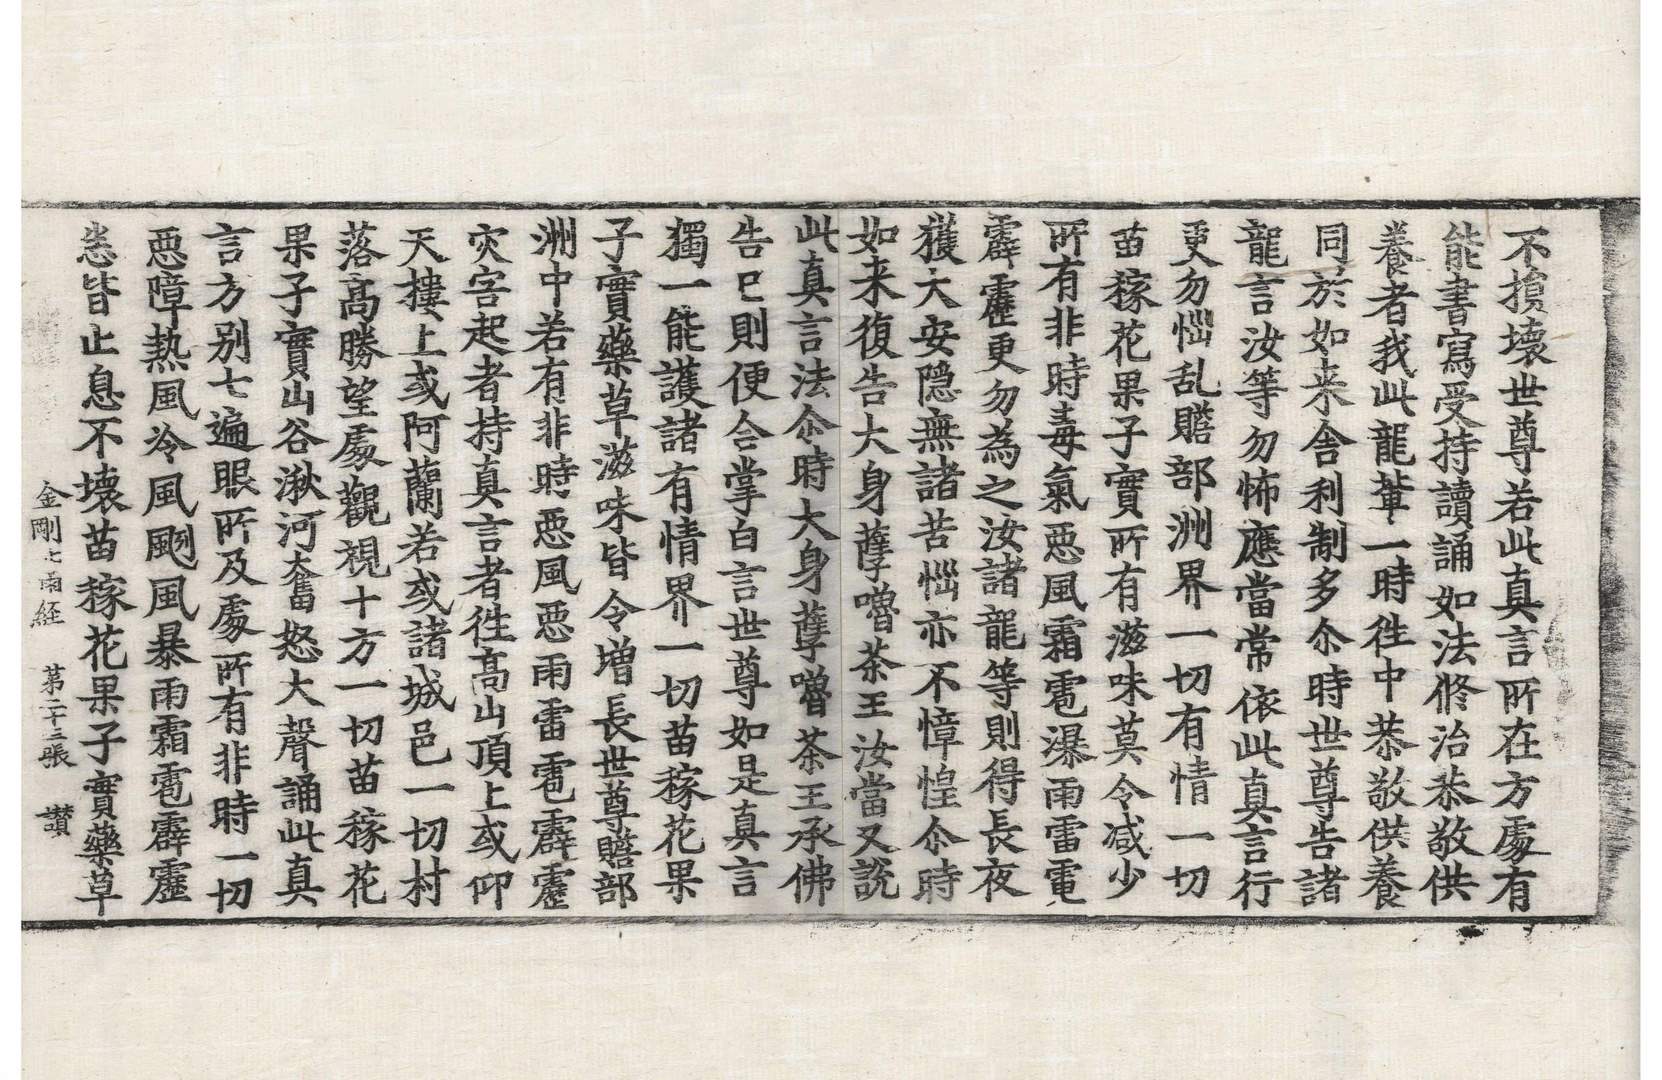 不損壞世尊若此真言所在方處有
能書寫受持讀誦如法修治恭敬供
養者我此龍輩一時徃中恭敬供養
同於如来舍利制多尒時世尊告諸
龍言汝等勿怖應當常依此真言行
更勿惱乱贍部洲界一切有情一切
苗稼花果子實所有滋味莫令减少
所有非時毒氣惡風霜雹瀑雨雷電
霹靂更勿為之汝諸龍等則得長夜
獲大安隱無諸苦惱亦不慞惶尒時
如来復告大身孽嚕荼王汝當又說
此真言法尒時大身孽嚕荼王承佛
告已則便合掌白言世尊如是真言
獨一能護諸有情界一切苗稼花果
子實藥草滋味皆令增長世尊贍部
洲中若有非時惡風惡雨雷雹霹靂
灾害起者持真言者徃高山頂上或仰
天樓上或阿蘭若或諸城邑一切村
落高勝望處觀視十方一切苗稼花
果子實山谷湫河奮怒大聲誦此真
言方别七遍眼所及處所有非時一切
惡障熱風冷風颲風暴雨霜雹霹靂
悉皆止息不壞苗稼花果子實藥草
金剛七雨経 第二十三張 讃